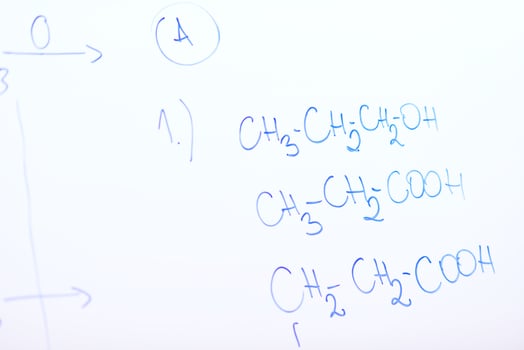 O
A
3
1.)
CH3-CH2-CH2-OH
CH3-CH2-COOH
CH2 CH2-COOH